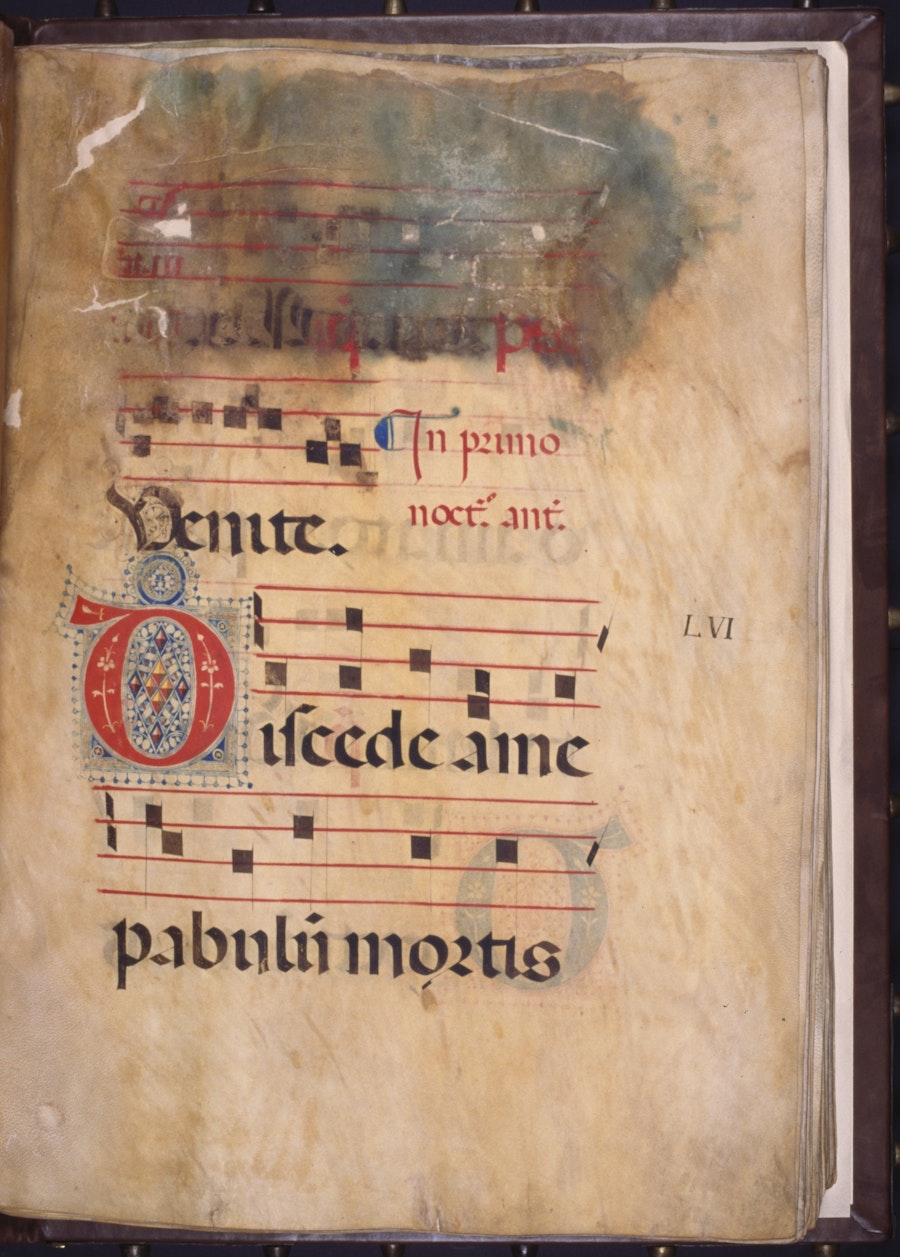 In primo
noct. ant.
Venite.
Discede a me
LVI
pabulū mortis